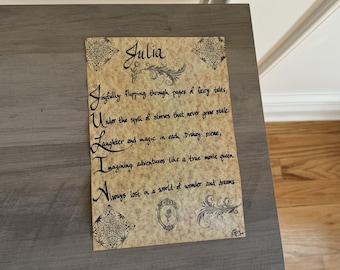 Julia
Joyfully flipping through pages of fairy tales,
Under the spell of stories that never grow stale.
Laughter and magic in each Disney scene,
Imagining adventures like a true movie queen.
Always lost in a world of wonder and dreams